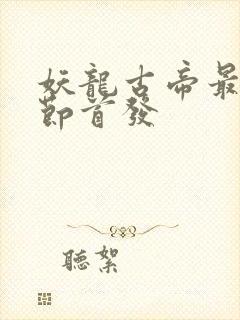 妖龍古帝最
節首發
聽絮